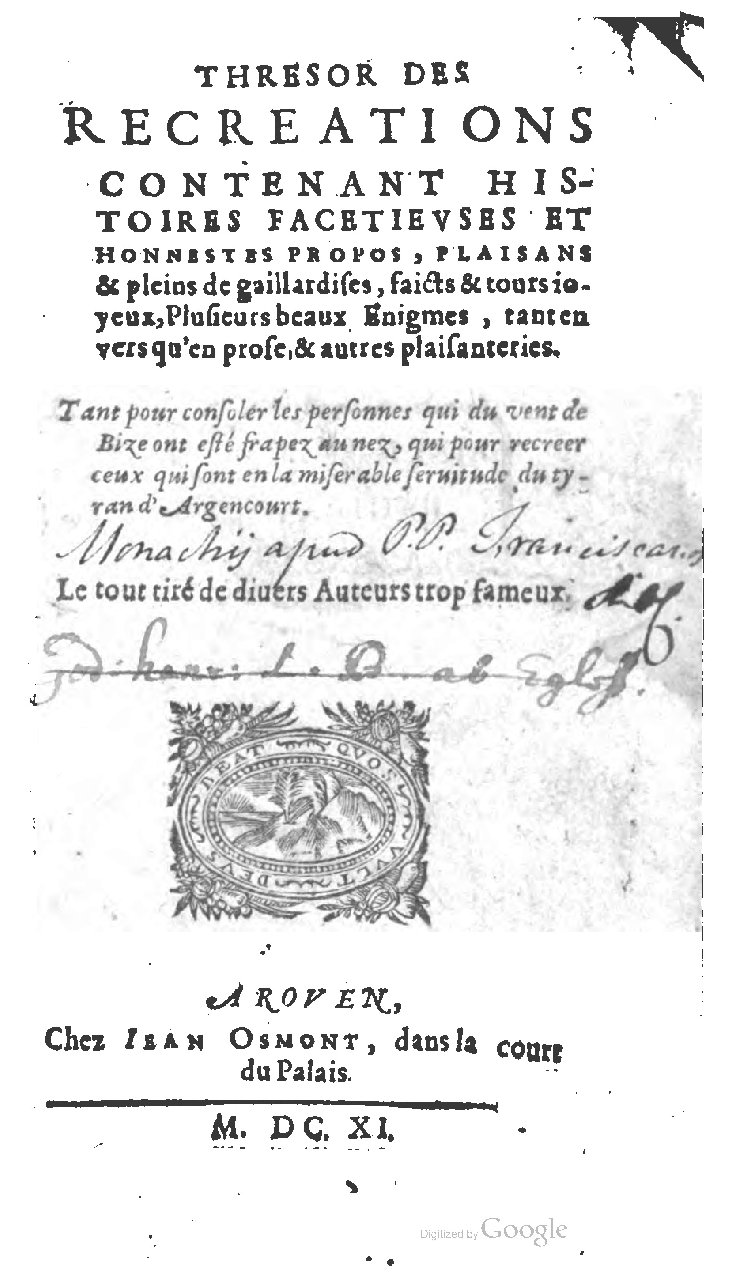 THRESOR DES
RECREATIONS
CONTENANT HIS-
TOIRES FACETIEVSES ET
HONNESTES PROPOS, PLAISANS
& pleins de gaillardiſes, faicts & tours io-
yeux, Pluſieurs beaux Enigmes, tant en
vers qu'en proſe, & autres plaiſanteries.
Tant pour conſoler les perſonnes qui du vent de
Bize ont eſté frapez au nez, qui pour recreer
ceux qui ſont en la miſerable ſeruitude du ty-
ran d'Argencourt.
Monachij apud P.P. Franciscanos
Le tout tiré de diuers Auteurs trop fameux.
ab
ABEAT QVOS
VVLT DEVS
A ROVEN,
Chez IEAN OSMONT, dans la court
du Palais.
M. DC. XI.
Digitized by Google